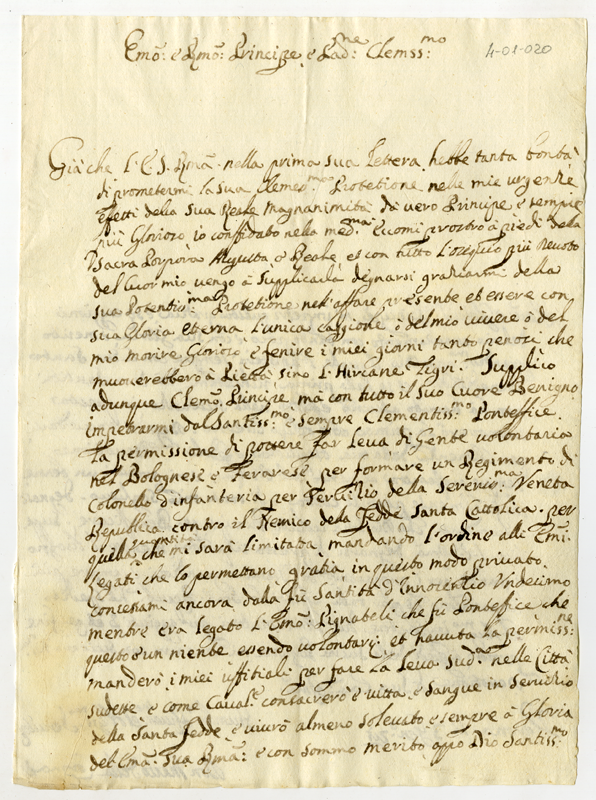 Emõ: e Rmõ: Principe, e Pad:ne Clemss:mo
4-01-020
Già che l'E. S. Rma: nella prima sua lettera hebbe tanta bontà
di prometermi la sua Clemed:ma Protetione nelle mie urgenze
efetti della sua Reale magnanimità da vero Principe e sempre
più Glorioso io conffidato nella med:ma Eccomi prostro à piedi della
Sacra Porpora Augusta, e Reale, et con tutto l'ossequio più devoto
del Cuor mio vengo à Supplicarla degnarsi graziarmi della
sua Potentis:ma Protetione nell'affare presente et essere con
sua Gloria eterna l'unica caggione ò del mio vivere ò del
mio morire Glorioso e fenire i miei giorni tanto penosi che
muoverebbero à Pietà sino l'Hircane Tigri. Supplico
adunque Clemo: Principe mà con tutto il suo Cuore Benigno
impetrarmi dal Santiss:mo e sempre Clementiss:mo Ponteffice
la permissione di pottere far leva di Gente volontaria
nel Bolognese e Ferarese per formare un Regimento di
Colonello d'infanteria per servitio della Sereniss:ma Veneta
Republica contro il Nemico della Fedde Santa Cattolica, per
quella quantità che mi sarà limitata, mandando l'ordine alli Emi:
Legati che lo permettano gratia in questo modo privato
concessami ancora dalla fù Santità d'Innocentio Undecimo
mentre era legato l'Emo: Pignateli che fù Ponteffice che
questo è un niente essendo volontarj: et havuta la permiss:ne
manderò i miei uffitiali per fare la leva sud:a nelle Città
sudette e come Caval:e consacrerò e vitta, e Sangue in Servichio
della Santa Fedde, e viurò almeno solevato, e sempre à Gloria
del Ema: Sua Rma: e con sommo merito appo Dio Santiss:mo